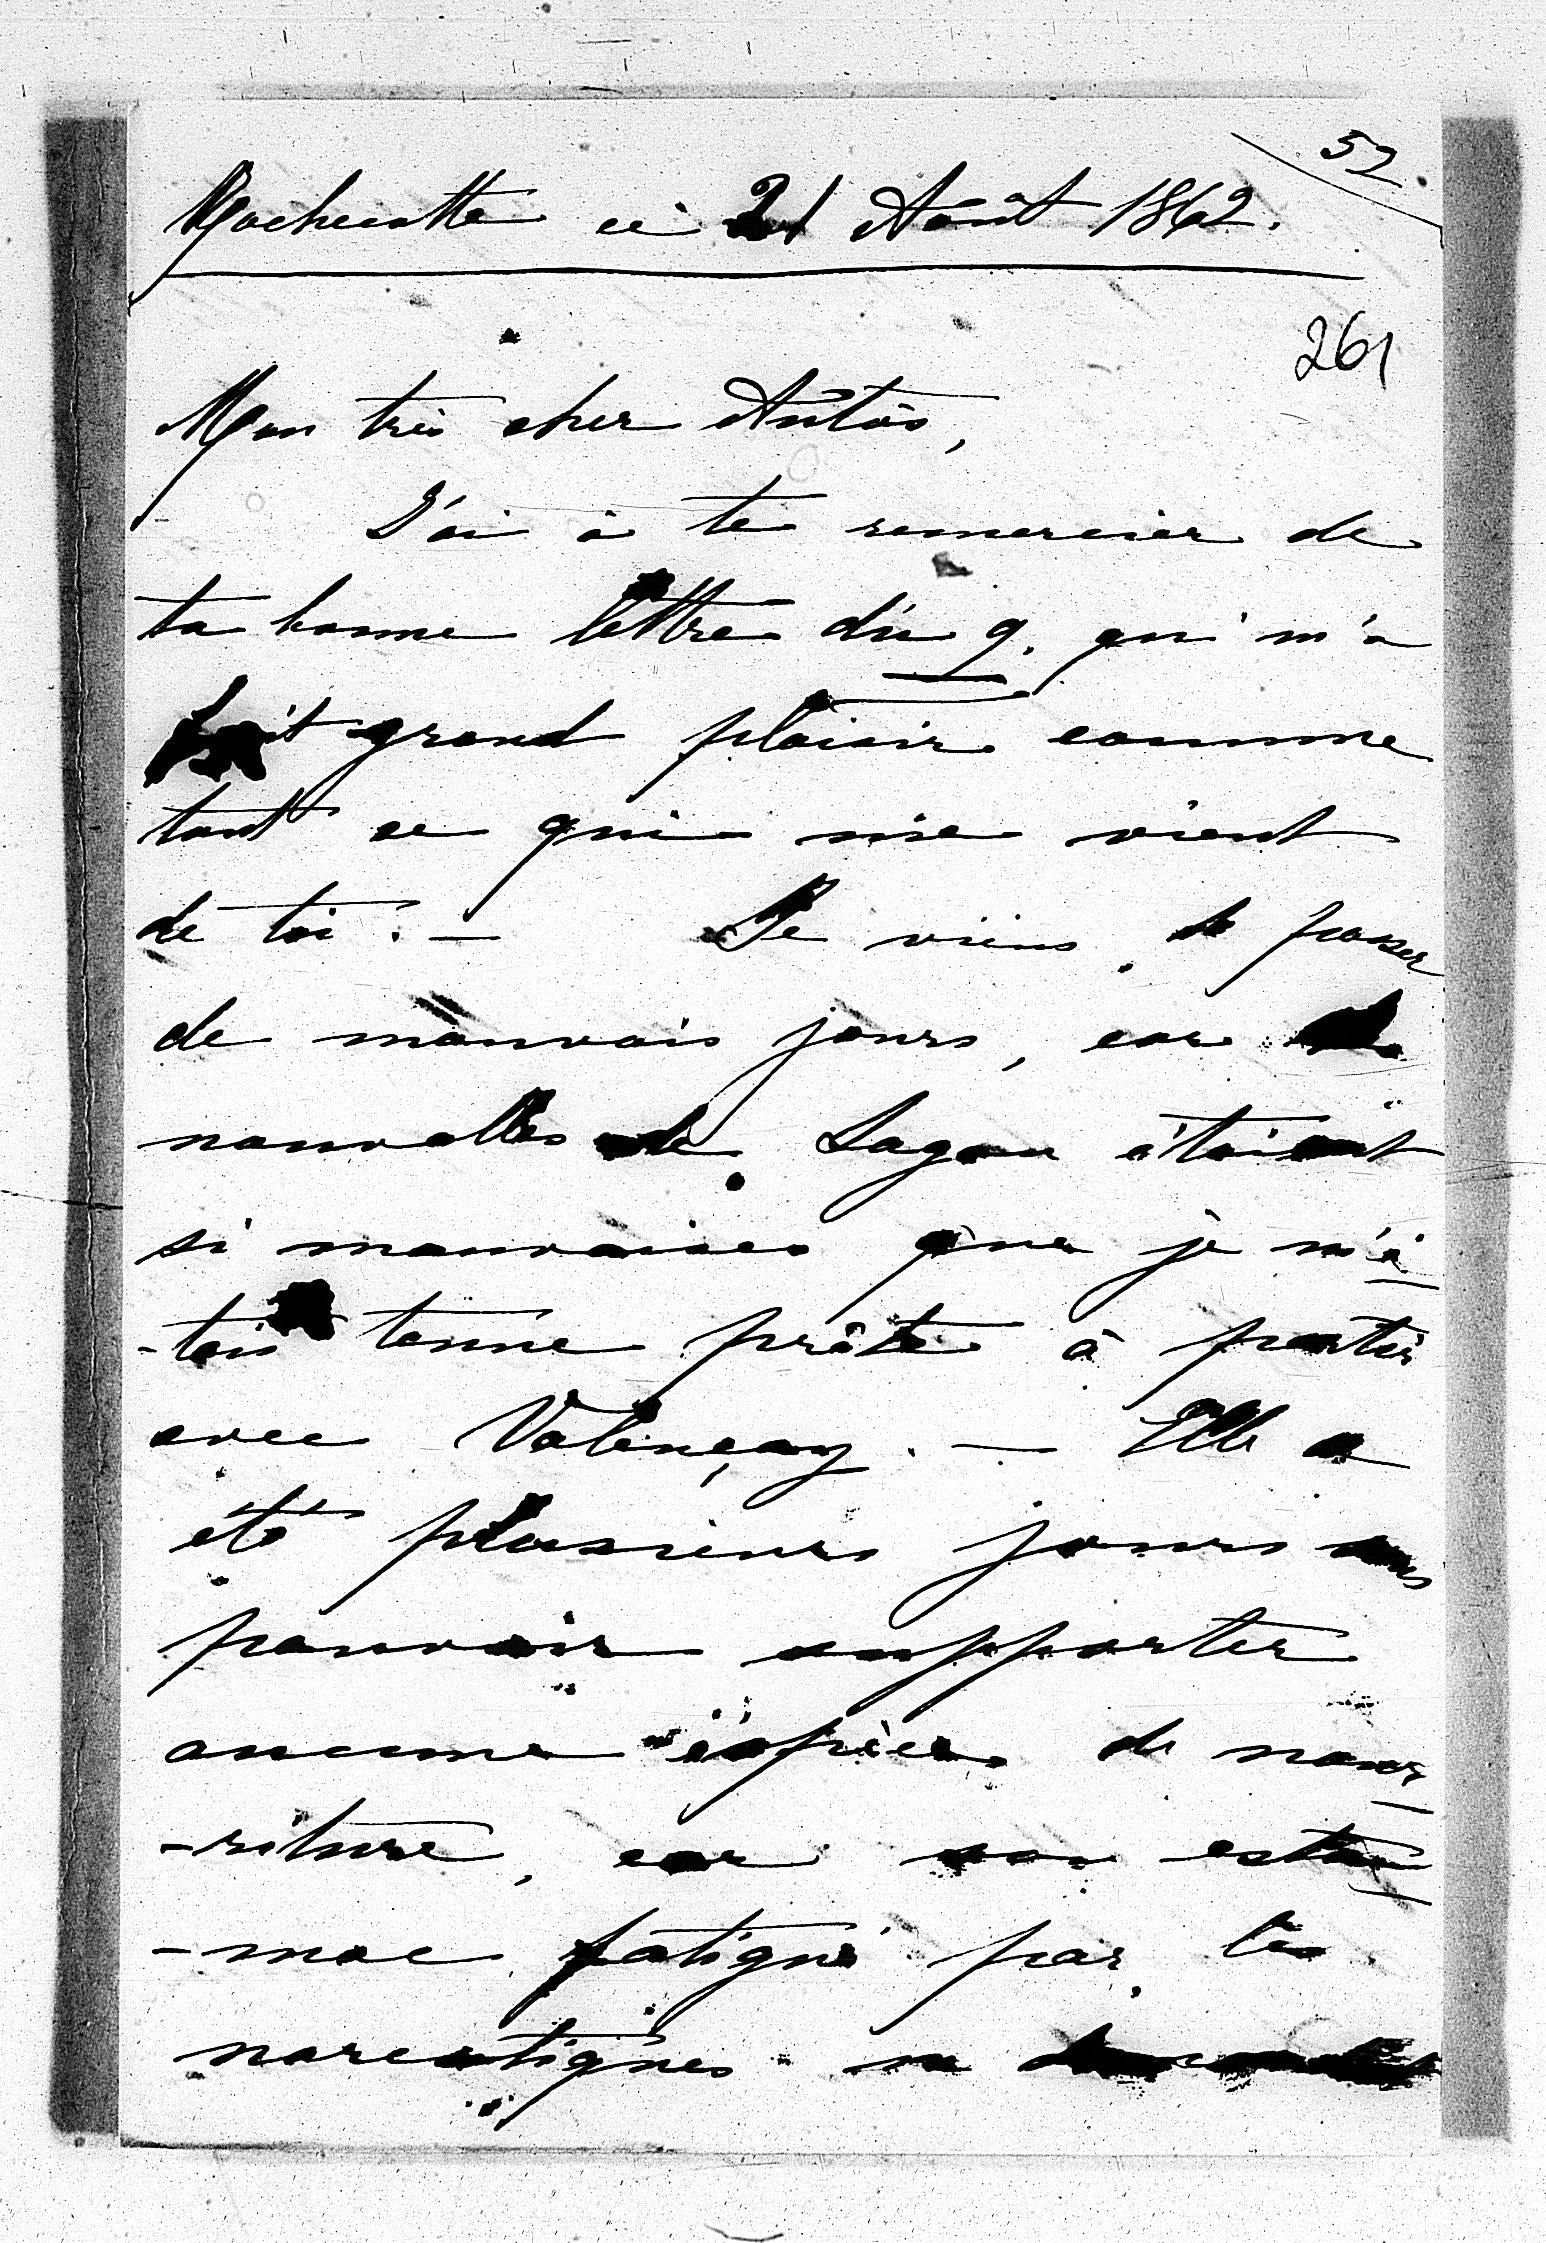 52
Rochecotte ce 21 Août 1862.
261
Mon très cher Antôs,
J'ai à te remercier de
ta bonne lettre du 9. qui m'a
fait grand plaisir comme
tout ce qui me vient
de toi. — Je viens de passer
de mauvais jours, car les
nouvelles de Sagan étaient
si mauvaises que je m'é-
-tais tenue prête à partir
avec Valençay. — Elle a
été plusieurs jours sans
pouvoir supporter
aucune espèce de nour-
-riture, car son esto-
-mac fatigué par les
narcotiques ne